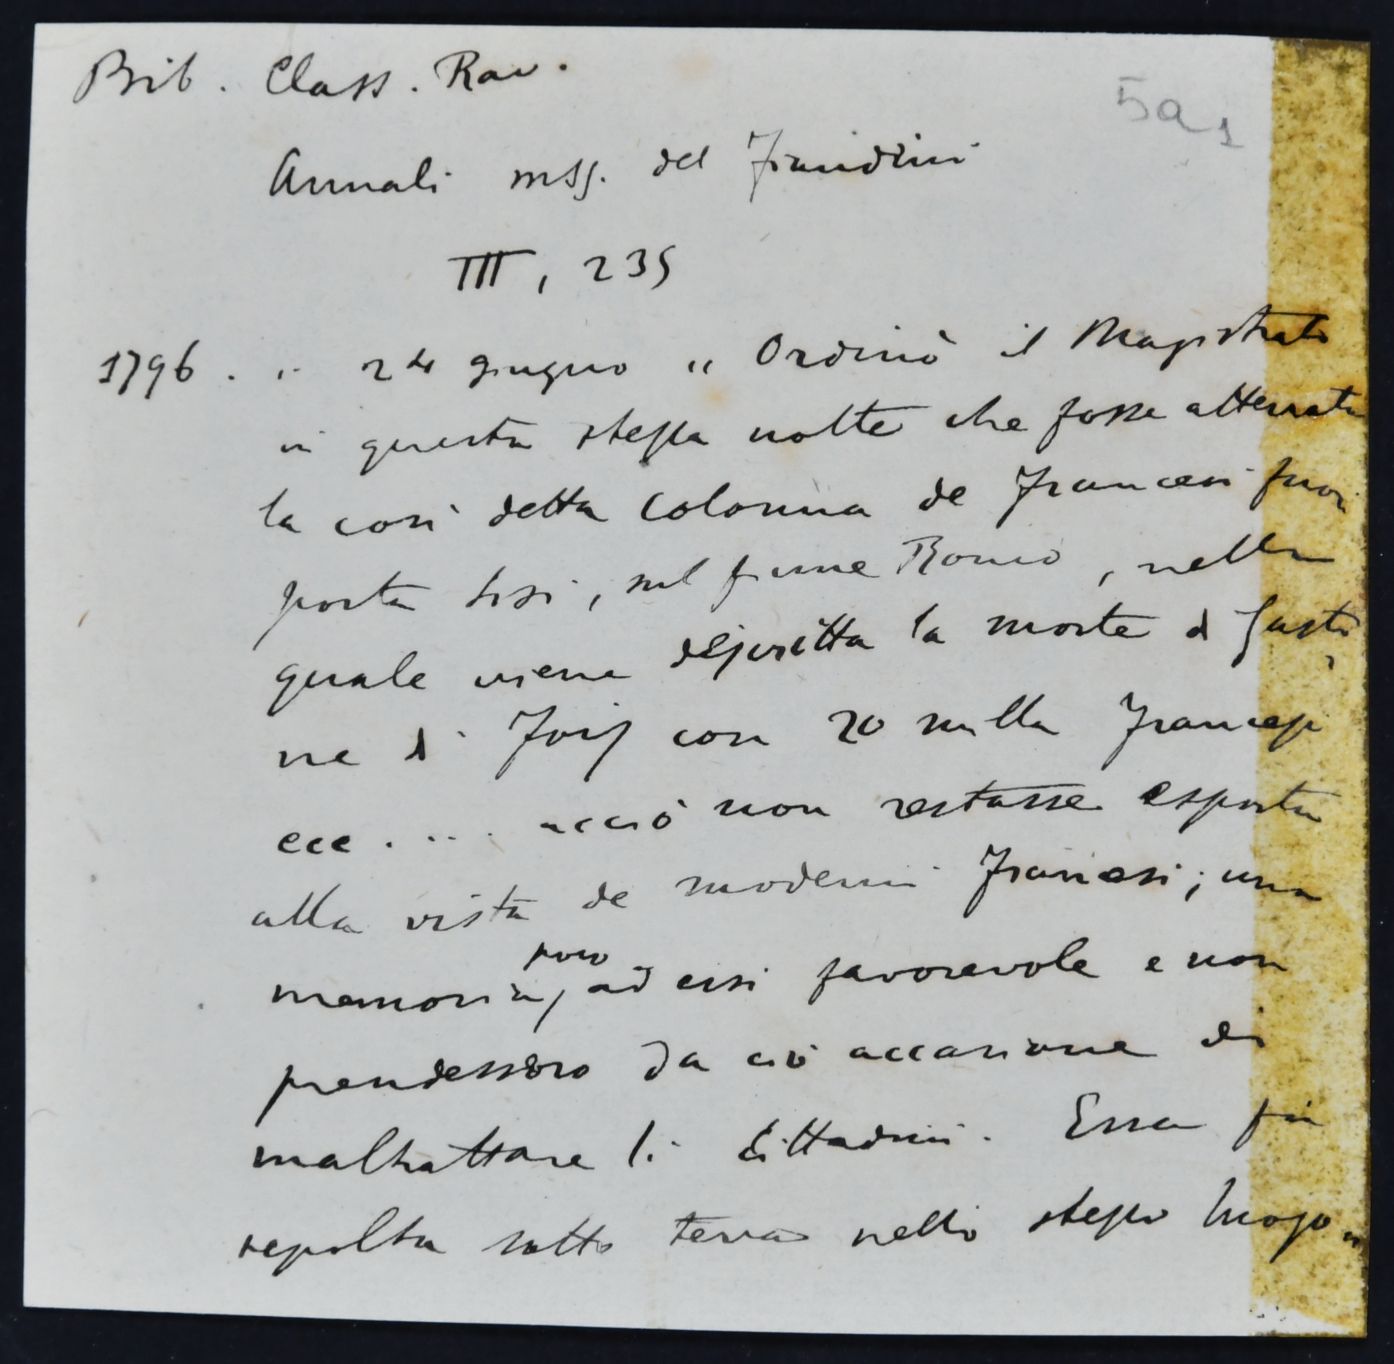 Bib. Class. Rav.
5a1
Annali mss. del Fiandrini
III, 235
1796. .. 24 giugno " Ordinò il Magistrato
in questa stessa notte che fosse atterrata
la così detta Colonna de Francesi fuori
porta Sisi, sul fiume Ronco, nella
quale viene descritta la morte di Gasto
ne di Foix con 20 milla Francesi
ecc. ... acciò non restasse esposta
alla vista de moderni Francesi; una
memoria, poco ad essi favorevole e non
prendessero da ciò occasione di
maltrattare li Cittadini. Essa fu
sepolta sotto terra nello stesso luogo "